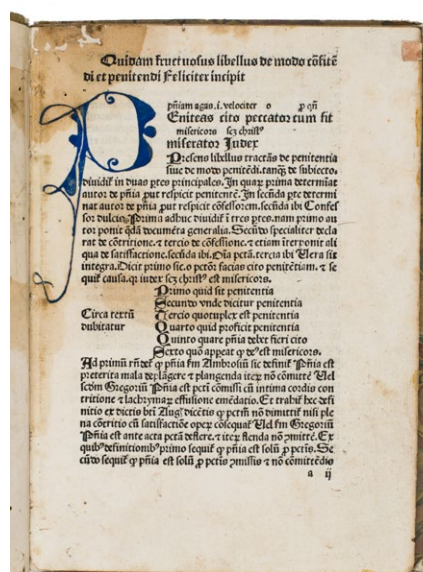 Quidam fructuosus libellus de modo cõfitẽ
di et penitendi Feliciter incipit
pñiam agas .i. velociter o ꝓ qꝛ
P Eniteas cito peccator cum sit
misericors scꝫ christꝰ
miserator Iudex
Presens libellus tractãs de penitentia
siue de modo penitẽdi. tanqꝫ de subiecto.
diuidiť in duas ꝑtes principales. In quaꝝ prima determinat
autor de pñia ꝓut respicit penitentẽ. In secũda ꝑte determi
nat autor de pñia ꝓut respicit cõfessorem. secũda ibi Confes
sor dulcis. Prima adhuc diuidiť ĩ tres ꝑtes. nam primo au
tor ponit qdã documẽta generalia. Secũdo specialiter decla
rat de cõtritione. ⁊ tercio de cõfessione. ⁊ etiam ĩterponit ali
qua de satisfactione. secũda ibi. Oĩa pctã. tercia ibi Uera sit
integra. Dicit primo sic. o pctõr facias cito penitẽtiam. ⁊ se
quiť causa. qꝛ iudex scꝫ christꝰ est misericors.
Primo quid sit penitentia
Secundo vnde dicitur penitentia
Circa textũ Tercio quotuplex est penitentia
dubitatur Quarto quid proficit penitentia
Quinto quare pñia debet fieri cito
Sexto quõ appeat ꝙ deꝰ est misericors.
Ad primũ rñdeť ꝙ pñia ẜm Ambrosiũ sic definiť Pñia est
preterita mala deplãgere ⁊ plangenda iteꝝ nõ cõmittẽ Uel
scdm Gregoriũ Pñia est pcti cõmissi cũ intima cordis con
tritione ⁊ lachrymaꝝ effusione emẽdatio. Et trahiť hec defi
nitio ex dictis bti Aug. dicẽtis ꝙ pctm̃ nõ dimittiť nisi ple
na cõtritio cũ satisfactiõe opeꝝ cõsequať Uel ẜm Gregoriũ
Pñia est ante acta pctã deflere. ⁊ iteꝝ flenda nõ ꝯmittẽ. Ex
quibꝰ definitionibꝰ primo sequiť ꝙ pñia est solũ ꝓ pctis. Se
cũdo sequiť ꝙ pñia est solũ ꝓ pctis ꝯmissis ⁊ nõ cõmittẽdis
a ij